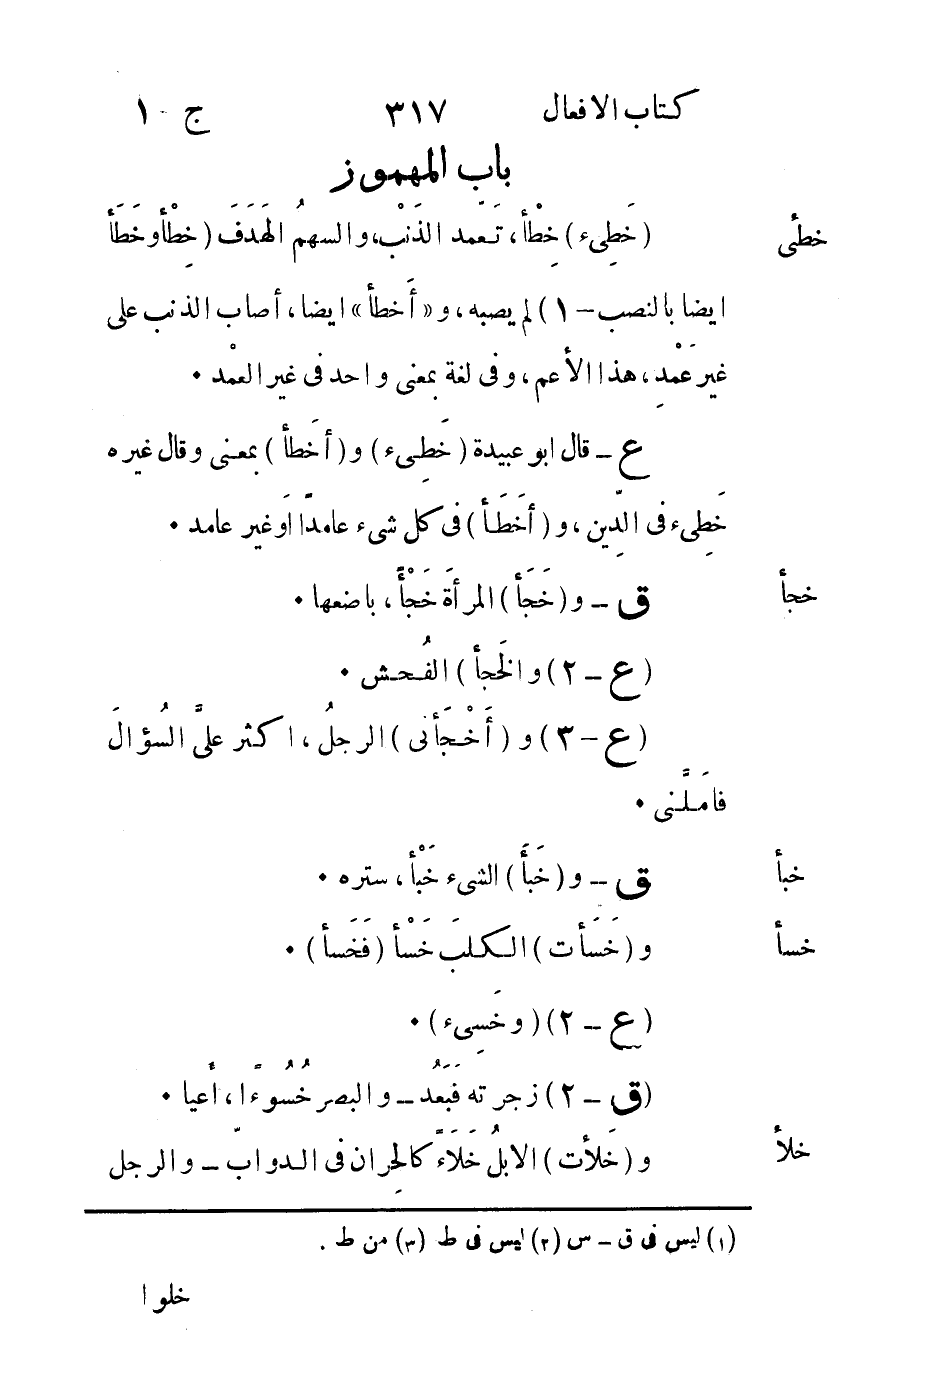 كتاب الافعال ٣١٧ ج - ١
باب المهموز
خطئ (خَطِىء) خِطْأً، تَعمَّد الذَنْب، والسهمُ الهَدَفَ (خِطْأً وخَطَأً
ايضا بالنصب - ١) لم يصبه، و «أَخطأ» ايضا، أصاب الذنب على
غير عَمْدٍ، هذا الأعم، وفى لغة بمعنى واحد فى غير العمْد •
ع - قال ابو عبيدة (خَطِىء) و(أخَطأ) بمعنى وقال غيره
خَطِىء فى الدِّين، و (أخَطَأ) فى كل شىء عامدًا اَوغير عامد •
خجأ ق - و(خَجَأ) المرأةَ خَجْأً، باضعها •
(ع - ٢) والخَجأ) الفُحش •
(ع - ٣) و (أَخْجَأنى) الرجلُ، اكثر علىَّ السُؤالَ
فامَلَّنى •
خبأ ق - و(خَبَأَ) الشىء خَبْأً، ستره •
خسأ و (خَسَأت) الكلبَ خَسْأً (فَخَسأ) •
(ع - ٢) (وخَسِىء) •
(ق - ٢) زجرته فَبَعُد - والبصر خُسُوءًا، أعيا •
خلأ و (خَلأت) الابلُ خَلَاءً كالحِران فى الدوابّ - والرجل
(١) ليس فى ق - س (٢) ليس فى ط (٣) من ط .
خلوا